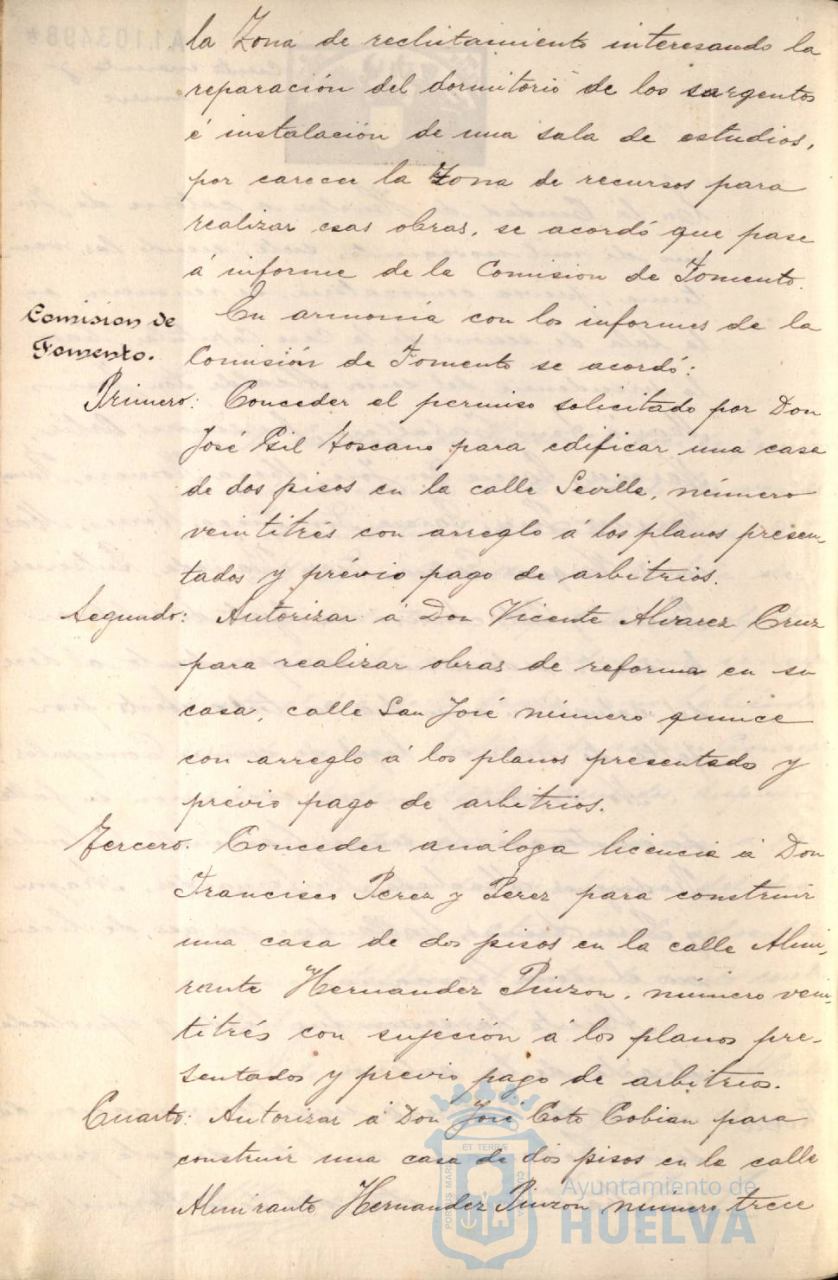 la Zona de reclutamiento interesando la
reparación del dormitorio de los sargentos
é instalación de una sala de estudios,
por carecer la Zona de recursos para
realizar esas obras, se acordó que pase
á informe de la Comision de Fomento.
Comision de
Fomento.
En armonía con los informes de la
Comisión de Fomento se acordó:
Primero: Conceder el permiso solicitado por Don
José Gil Toscano para edificar una casa
de dos pisos en la calle Sevilla, número
veintitrés con arreglo á los planos presen-
tados y prévio pago de arbitrios.
Segundo: Autorizar á Don Vicente Alvarez Cruz
para realizar obras de reforma en su
casa, calle San José número quince
con arreglo á los planos presentado y
prévio pago de arbitrios.
Tercero. Conceder análoga licencia á Don
Francisco Perez y Perez para construir
una casa de dos pisos en la calle Almi-
rante Hernandez Pinzon, número vein-
titrés con sujeción á los planos pre-
sentados y previo pago de arbitrios.
Cuarto: Autorizar á Don José Coto Cobian para
construir una casa de dos pisos en la calle
Almirante Hernandez Pinzon número trece
PORTUS MARIS ET TERRAE CUSTODIA
Ayuntamiento de
HUELVA